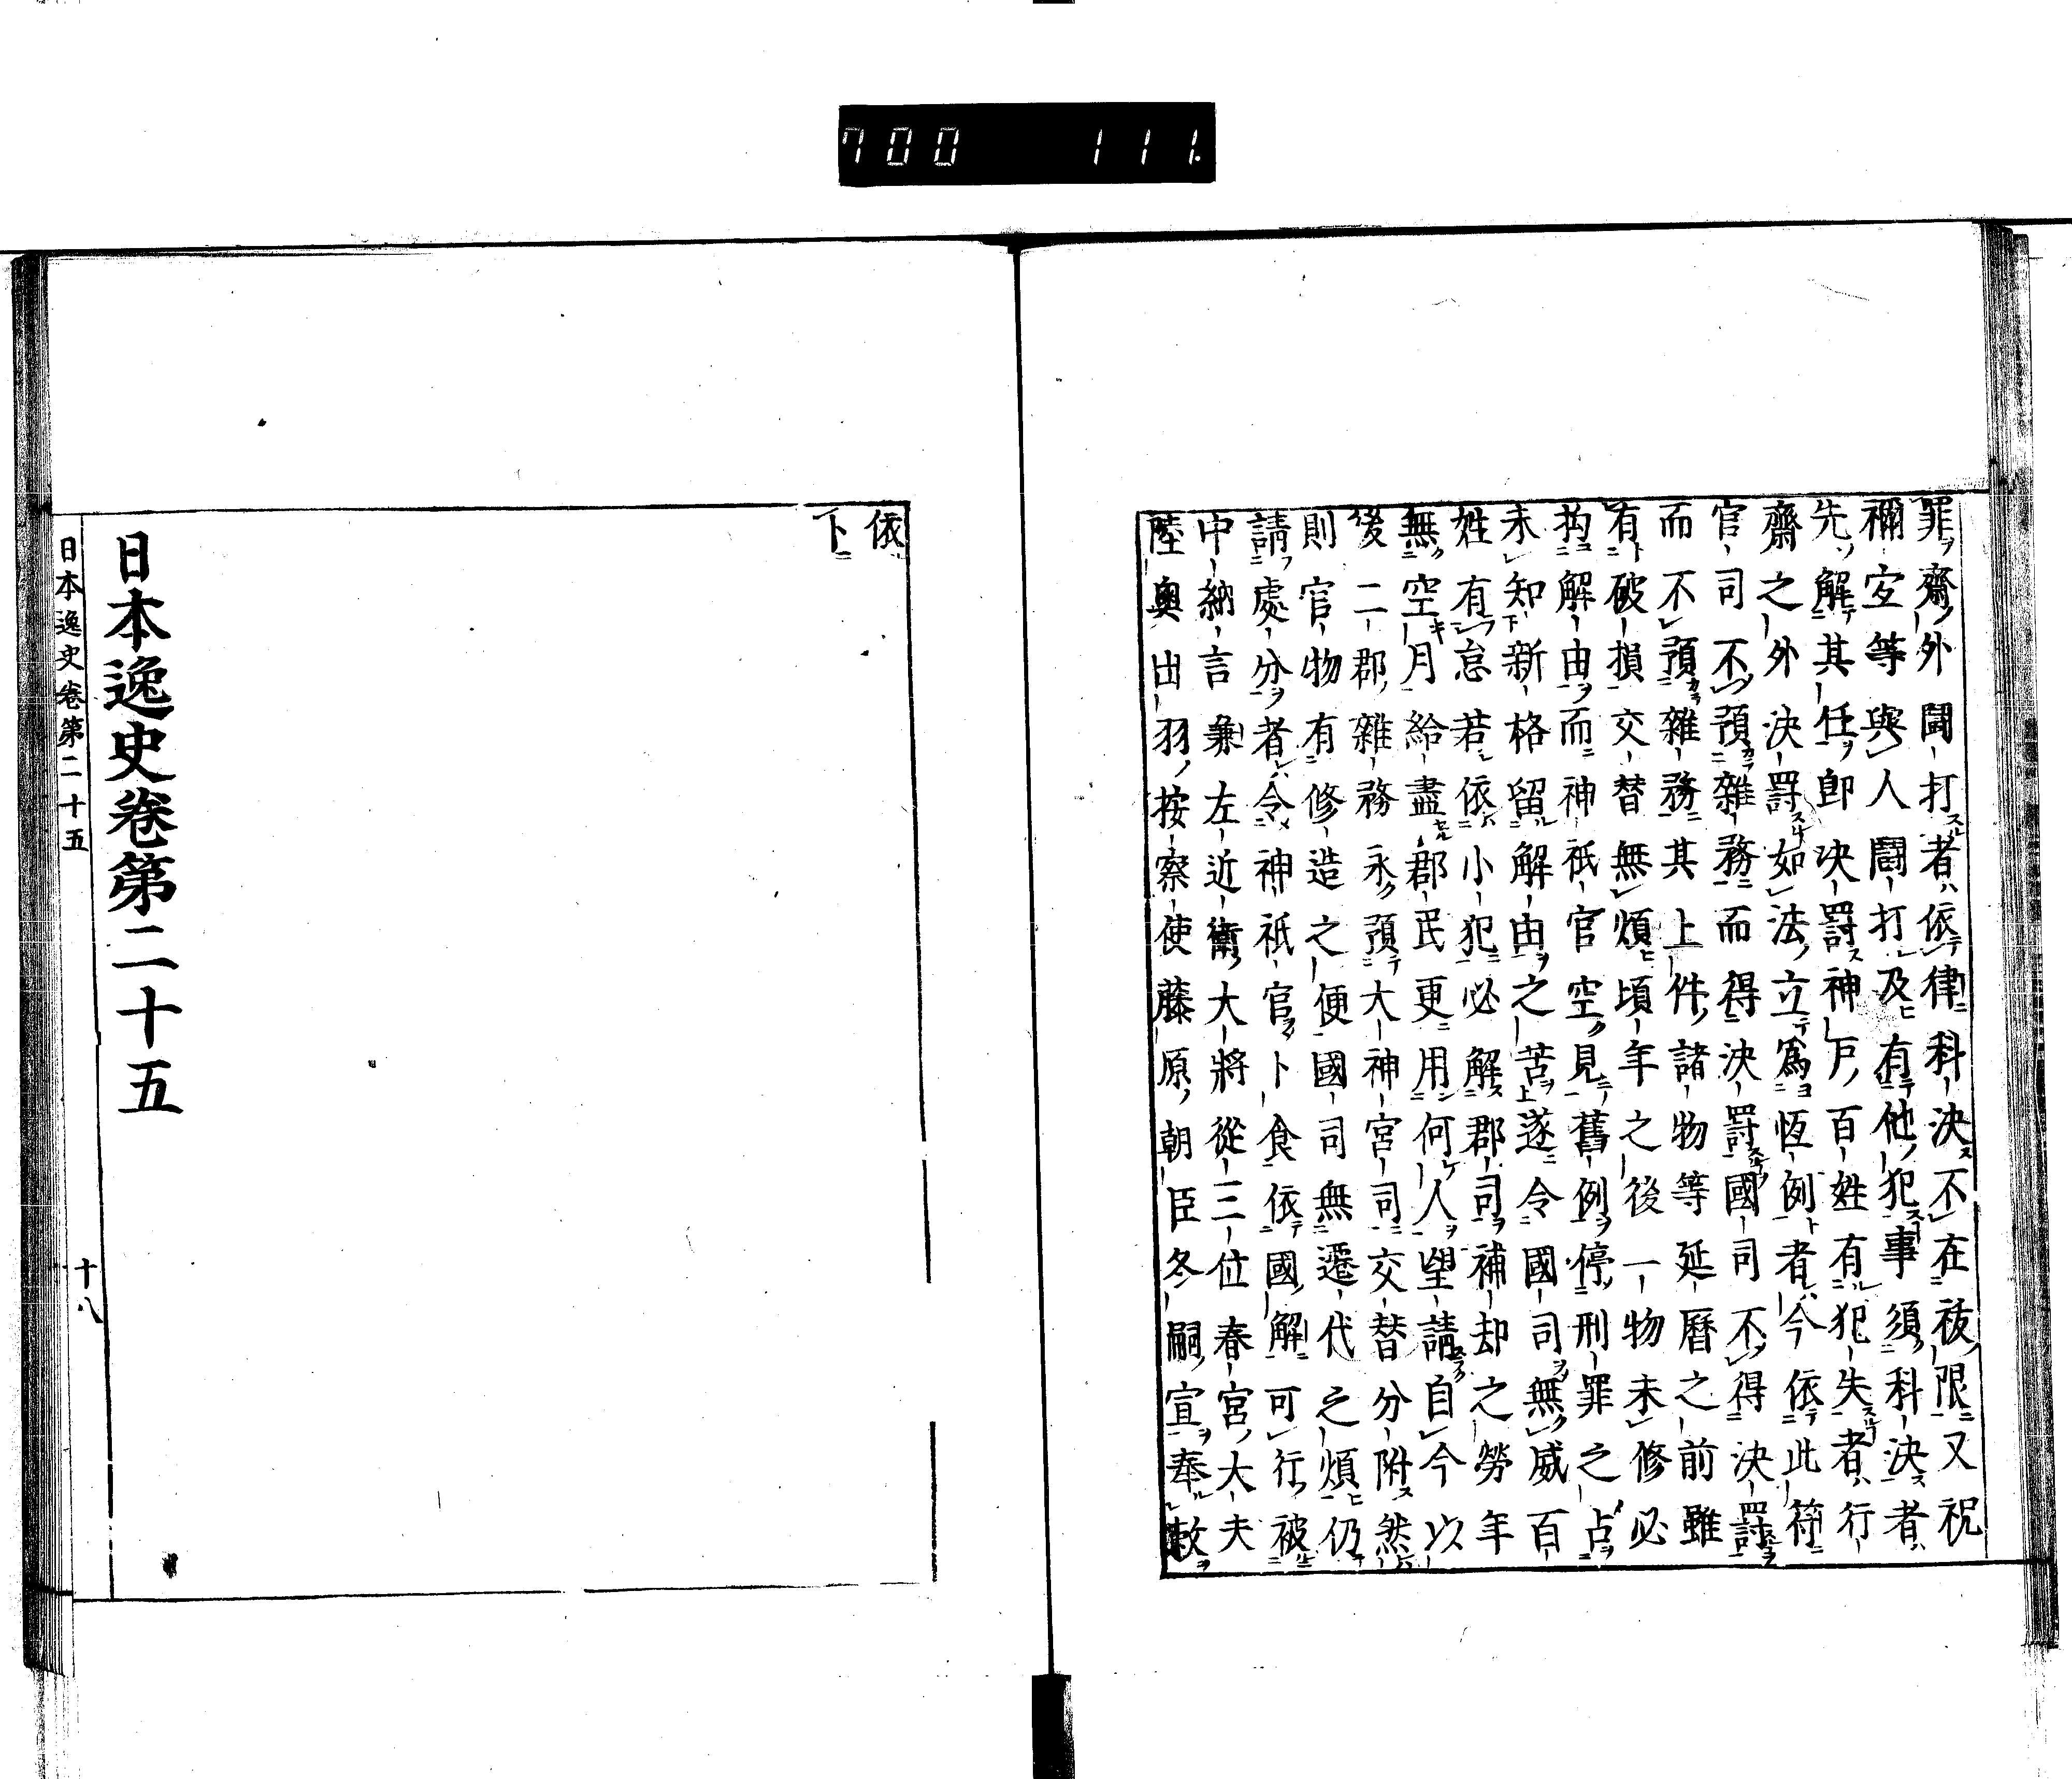 700 111
罪齋外鬪打者依律科決不在祓限又祝
禰宜等與人鬪打及有他犯事須科決者
先解其任即決罰神戶百姓有犯失者行
齋之外決罰如法立爲恆例者今依此符
官司不預雜務而得決罰國司不得決罰
而不預雜務其上件諸物等延曆之前雖
有破損交替無煩頃年之後一物未修必
拘解由而神祇官空見舊例停刑罪之占
未知新格留解由之苦遂令國司無威百
姓有怠若依小犯必解郡司補却之勞年
無空月給盡郡民更用何人望請自今以
後二郡雜務永預大神宮司交替分附然
則官物有修造之便國司無遷代之煩仍
請處分者令神祇官卜食依國解可行被
中納言兼左近衛大將從三位春宮大夫
陸奧出羽按察使藤原朝臣冬嗣宣奉敕
依
卜
日本逸史卷第二十五
日本逸史卷第二十五 十八